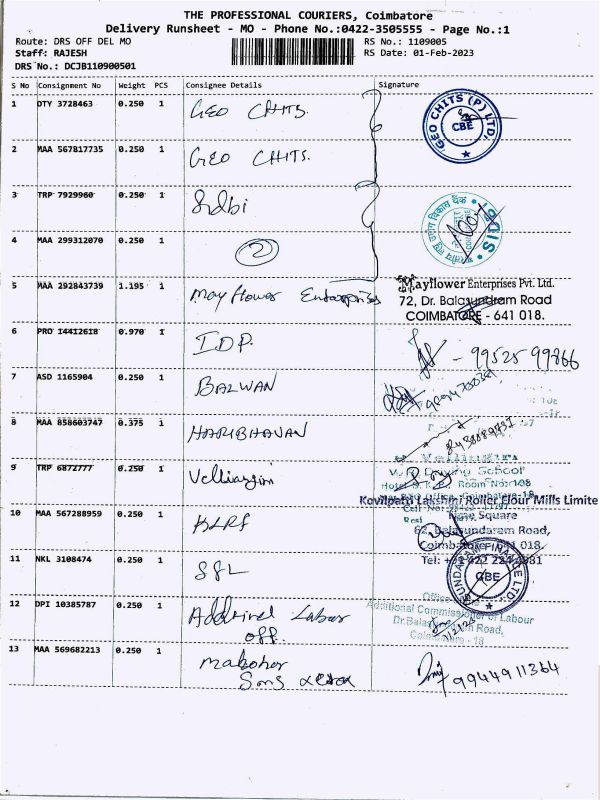 THE PROFESSIONAL COURIERS, Coimbatore
Delivery Runsheet - MO - Phone No.:0422-3505555 - Page No.:1
Route: DRS OFF DEL MO
RS No.: 1109005
Staff: RAJESH
RS Date: 01-Feb-2023
DRS No.: DCJB110900501
S No Consignment No Weight PCS Consignee Details Signature
1 DTY 3728463 0.250 1 GEO CHITS.
GEO CHITS (P) LTD. CBE
2 MAA 567817735 0.250 1 GEO CHITS.
3 TRP 7929960 0.250 1 Sidbi
भारतीय लघु उद्योग विकास बैंक SIDBI
4 MAA 299312070 0.250 1 2
5 MAA 292843739 1.195 1 Mayflower Enterprises
Mayflower Enterprises Pvt. Ltd.
72, Dr. Balasundram Road
COIMBATORE - 641 018.
6 PRO 14412618 0.970 1 IDP.
- 99525 99866
7 ASD 1165904 0.250 1 BALWAN
8 MAA 858603747 0.375 1 HARIBHAVAN
9 TRP 6872777 0.250 1 Velliangiri
Velliangiri
Driving School
Room No:108
Kovilpatti Lakshmi Roller Flour Mills Limite
10 MAA 567288959 0.250 1 KLRF
Square
62, Balasundaram Road,
Coimbatore 018.
Tel: +91 422
11 NKL 3108474 0.250 1 SFL
SUNDARAM FINANCE LTD. CBE
12 DPI 10385787 0.250 1 Additinal Labar
off.
Additional Commissioner of Labour
Dr.Balasundram Road,
Coimbatore - 18
13 MAA 569682213 0.250 1 Manohar
Sons
9944911364